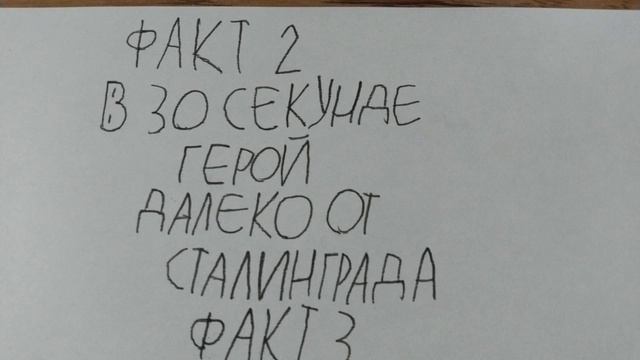 ФАКТ 2
В 30 СЕКУНДЕ
ГЕРОЙ
ДАЛЕКО ОТ
СТАЛИНГРАДА
ФАКТ 3